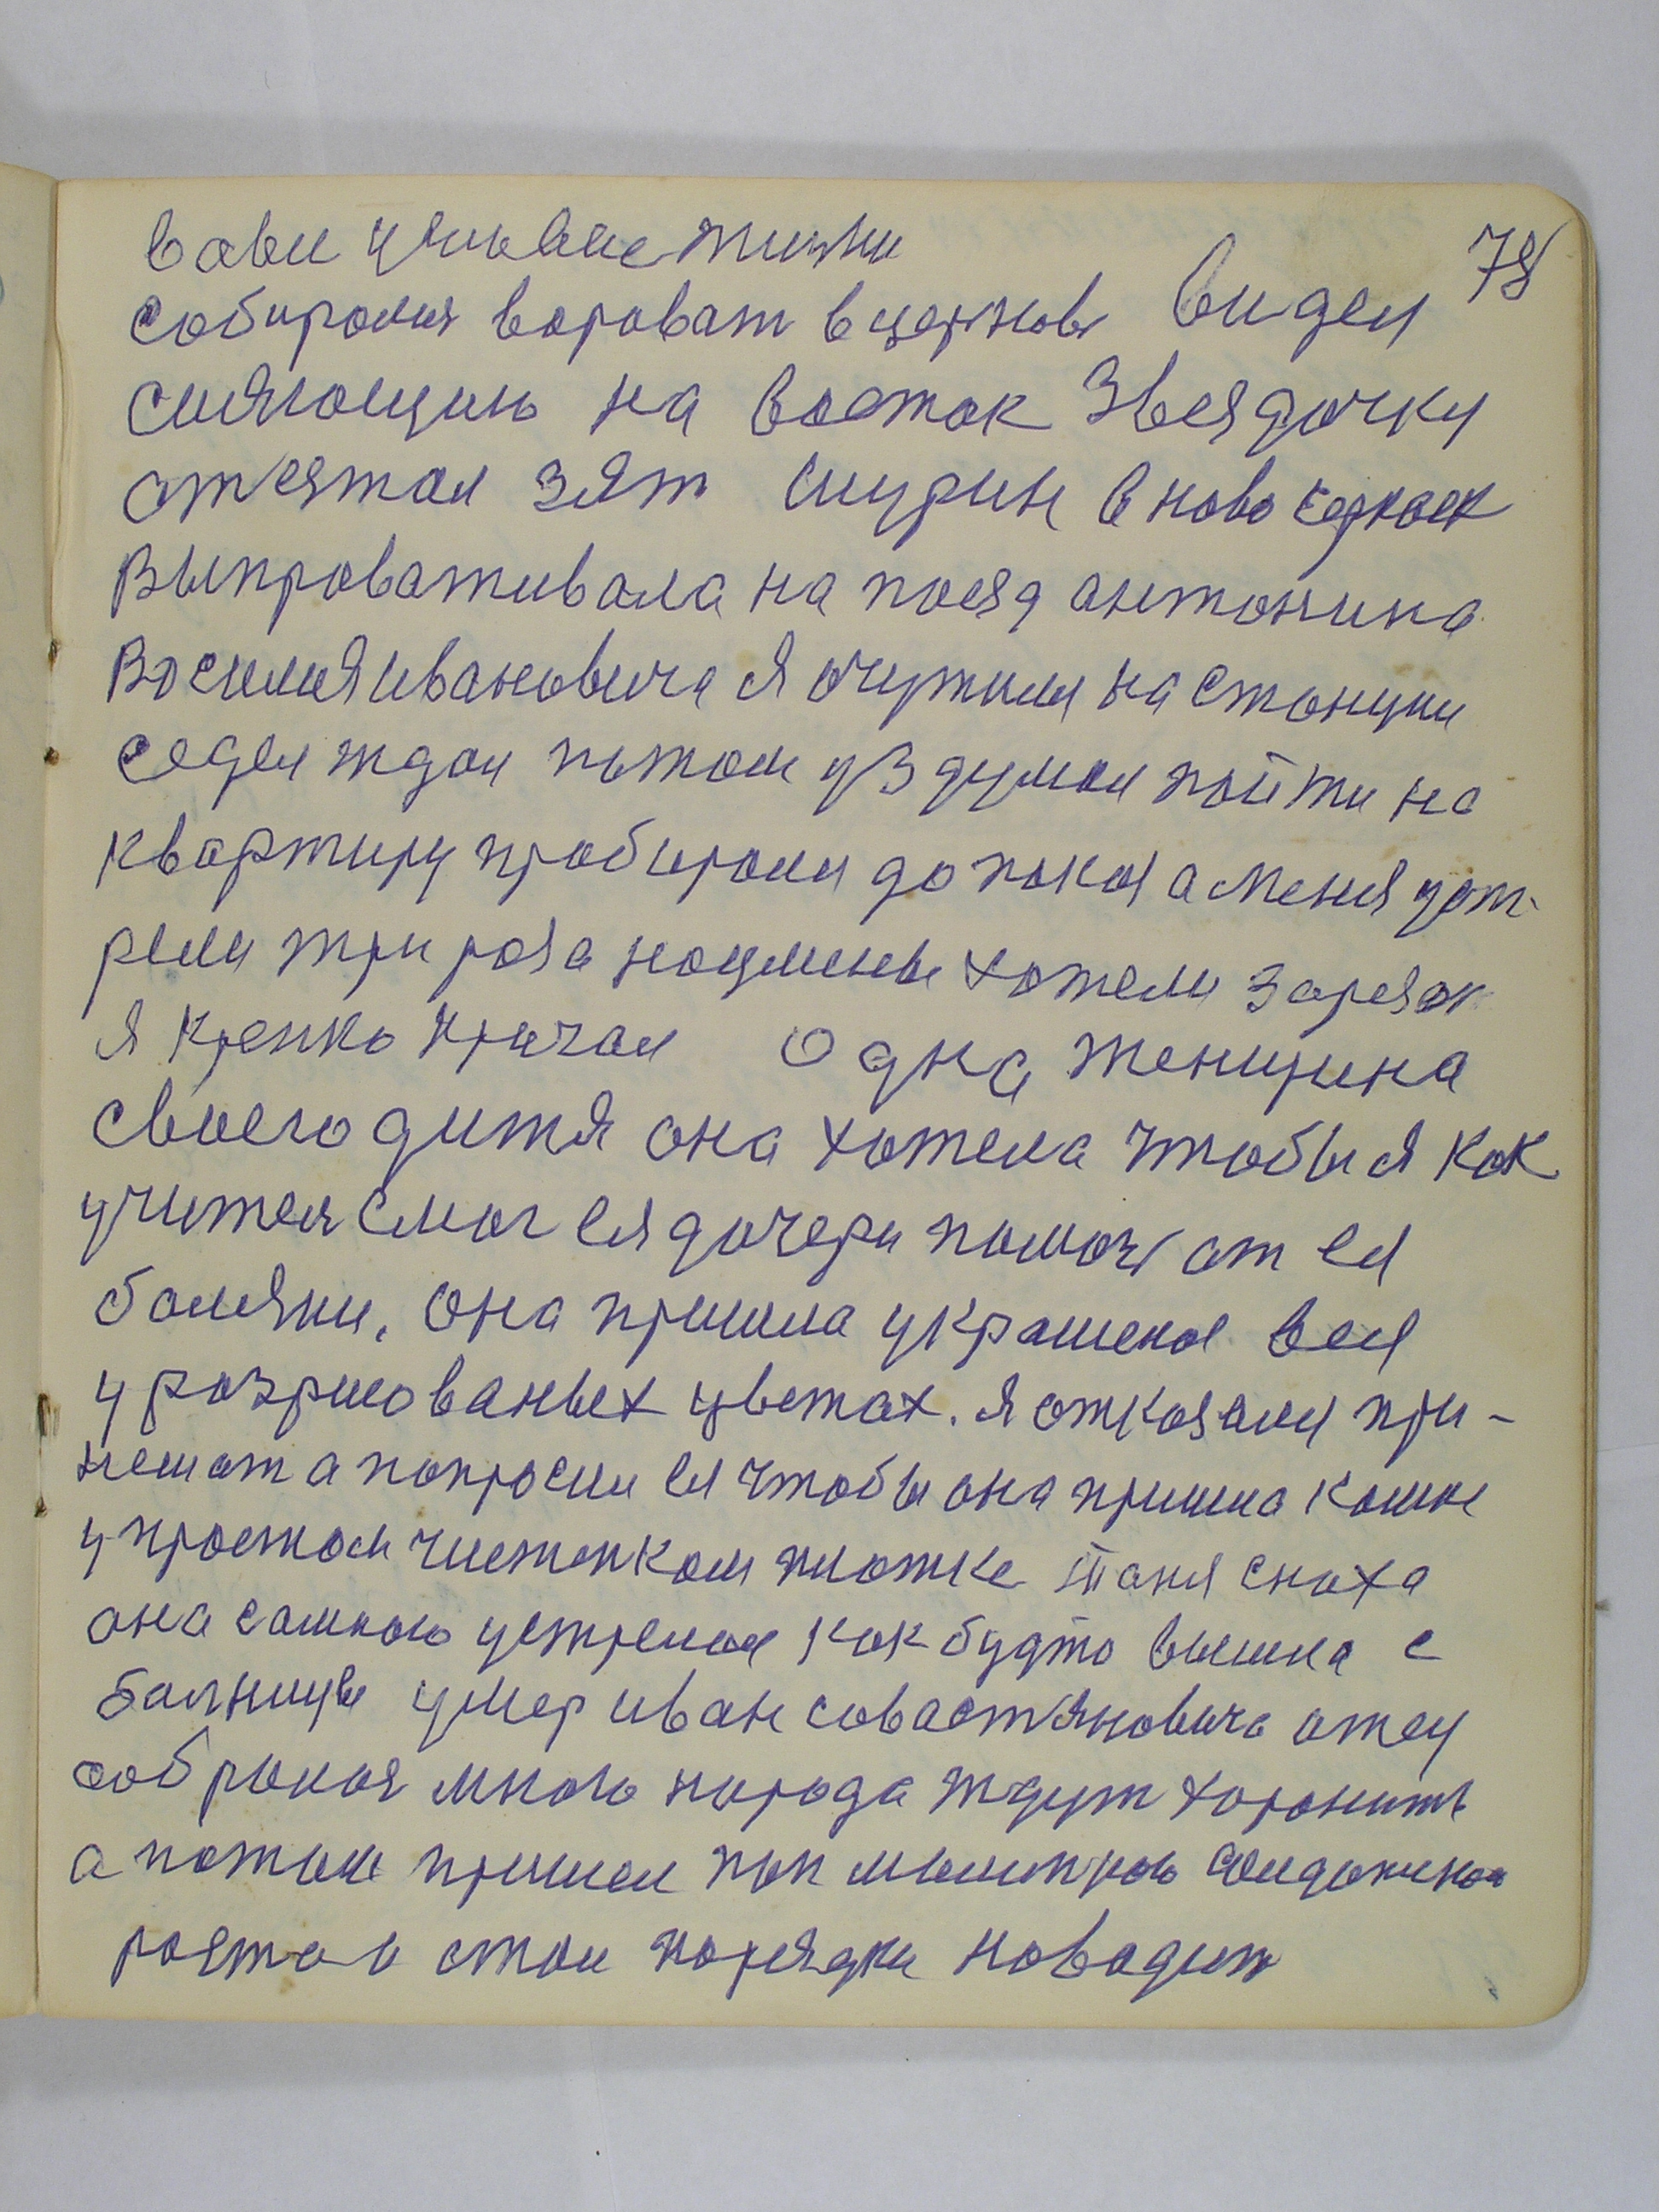 78
собиролися вороват в церковь видел
сияющию на восток звездочку
отьезжал зят шурин в новочеркаск
выпроваживала на поезд антонина
Восилия ивановича я очутилси на стонции
седел ждал потом уздумал пойти на
квартиру пробиролси допокоя а меня
три роза нацмены хотели зарезат
я крепко кричал одна женщина
своего дитя она хотела чтобы я как
учител смог ея дочери помочь от ея
болязни, она пришла украшеноя вся
у розрисованых цветах. я откозался при-
немат а попросил ея чтобы она пришла комне
у простом чистенком платке таня сноха
она самною устрелася как будто вышла с
балницы умер иван савастянович отец
собролося много народа ждут хоронить
а потом пришел поп
роста стои порядки наводит